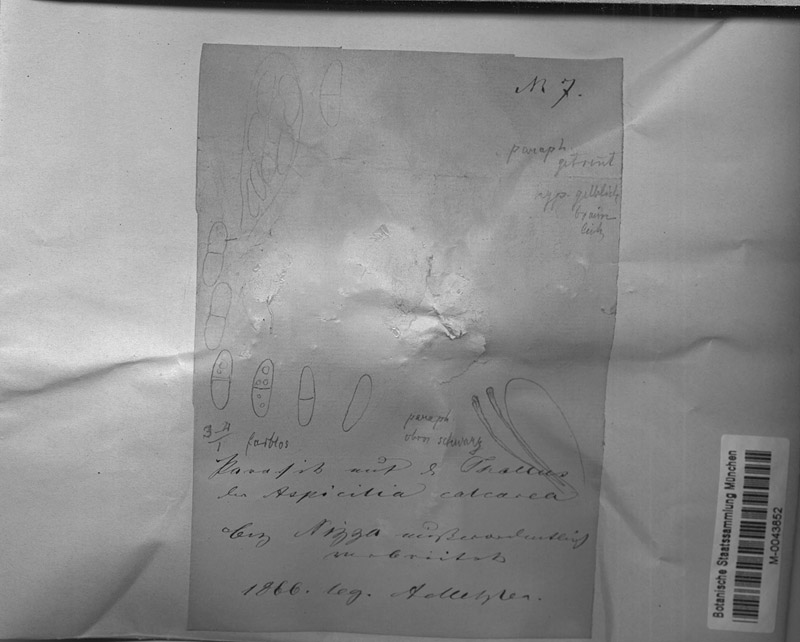 N 7.
paraph.
getrennt
hyp gelblich
braun
lich
3-4/1 farblos
paraph
oben schwarz
Parasit auf d. Thallus
der Aspicilia calcarea
bey Nizza außerordentlich
verbreitet
1866. leg.
Botanische Staatssammlung München
M-0043852